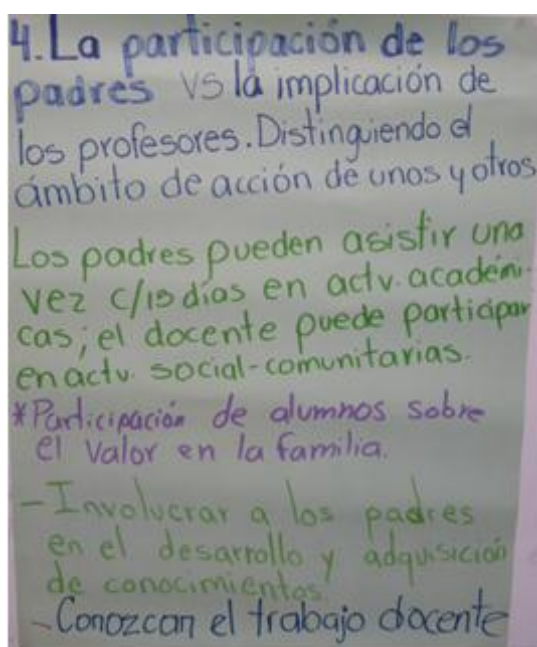 4. La participación de los
padres VS la implicación de
los profesores. Distinguiendo el
ámbito de acción de unos y otros
Los padres pueden asistir una
vez c/15 días en actv. académi-
cas; el docente puede participar
en actv. social-comunitarias.
*Participación de alumnos sobre
el valor en la familia.
- Involucrar a los padres
en el desarrollo y adquisición
de conocimientos.
- Conozcan el trabajo docente